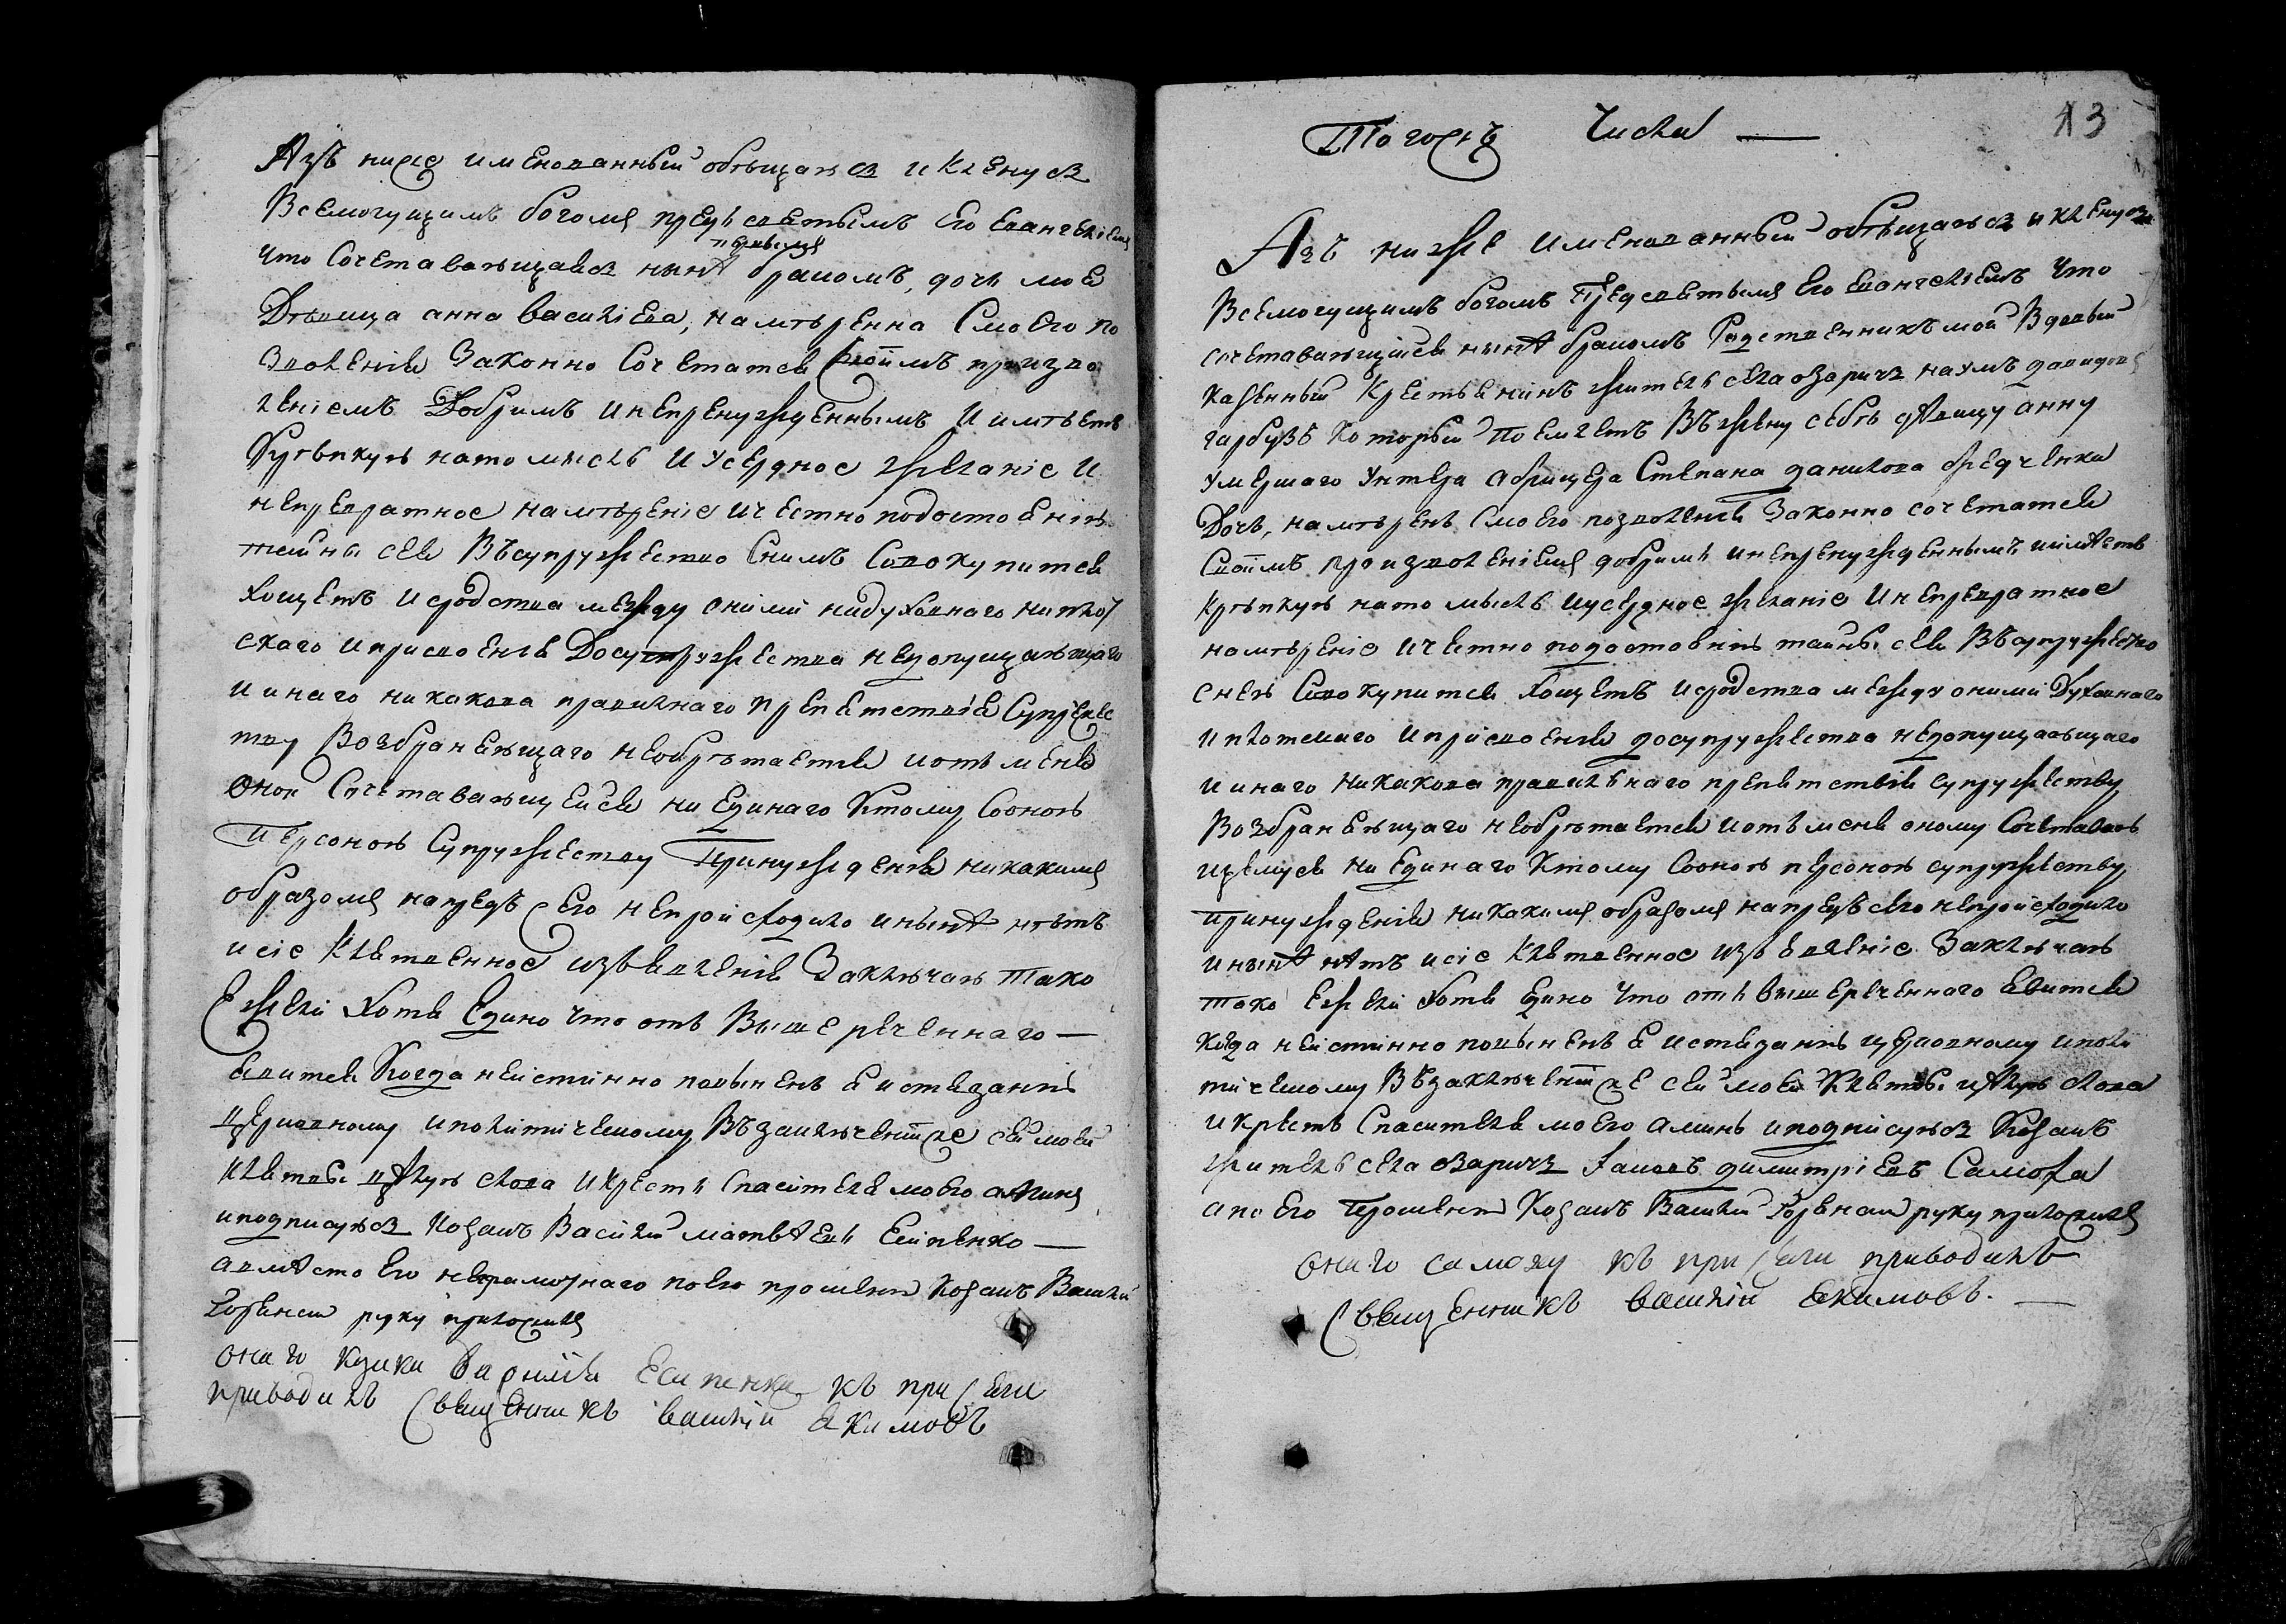 Азъ ниже именованный обѣщаюся и кленуся
Всемогущимъ богомъ предъ святымъ Его Евангелиемъ
первымъ
что Сочетавающаяся нынѣ бракомъ, дочь моя
Дѣвица анна василіева, намѣренна Смоего по
зволенія Законно Сочетатся Своимъ произво
леніемъ Добримъ и непренужденнымъ И имѣетъ
Крѣпкую натомысль и усердное желаніе и
непревратное намѣреніе ичестно подостоянію
тайны сея Въсупружество Снимъ Совокупится
хощетъ исродства между оними нидуховнаго ниплот
скаго иприсвоенія Досупружества недопущающаго
и инаго никакова правилнаго препятствія Супружес
тву Возбраняющаго необрѣтается иотъ меня
оной Сочетавающейся ни Единаго Ктому Сооною
персоною Супружеству Принужденія никакимъ
образомъ напредъ Сего непроисходило инынѣ нѣтъ
и сіе Клятвенное изъявленія Заключаю тако
Ежели хотя Едино что отъ Вышереченнаго —
Явится Когда неистинно повыненъ я истязанію
Церковному иполитическому Възаключеніи же сей моей
Клятвы цѣлую слова и крестъ Спасителя моего аминь
иподписуюся козакъ Василий матвѣевъ Есипенко —
авмѣсто Его неграмотнаго поего прошенію Козакъ Василий
руку приложилъ
онаго кзака василія Есипенка къ присяги
приводилъ Священникъ василіи Якимовъ
13
Тогожъ Числа —
Азъ ниже именованный обѣщаюся и кленуся
Всемогущимъ богомъ Предсвятымъ Его Евангелиемъ что
сочетавающійся нынѣ бракомъ Родственникъ мой Вдовый
казенный Крестьянинъ житель села озарич наумъ давидовъ
гарбузъ Который Поемлетъ Въжену себѣ дѣвицу анну
умершаго унтера офицера Степана данилова
Дочь, намѣренъ Смоего позволенія Законно сочетатся
Своимъ произволеніемъ добримъ инепренужденнымъ иимѣетъ
Крѣпкую натомысль иусердное желаніе Инепревратное
намѣреніе ичестно подостоянію тайны сея Въсупружество
снею Совокупится хощетъ исродства между оними Духовнаго
иплотскаго иприсвоенія досупружества недопущающаго
и инаго никакова правилнаго препятствія супружеству
Возбраняющаго необрѣтается иотъ меня оному Сочетаваю
щемуся ни Единаго Ктому Сооною персоною супружеству
принужденія никакимъ образомъ напредъ сего непроисходило
инынѣ нѣтъ исіе Клятвенное изъявленіе Заключаю
тако Ежели хотя Едино что отъ вышереченнаго Явится
когда неистинно повыненъ я истязанію церковному иполи
тическому Възаключеніи же сей моей Клятвы цѣлую слова
икрестъ Спасителя моего аминь иподписуюся Козакъ
житель села озарич Іаковъ димитріевъ Самоха
апоЕго Прошенію Козакъ Василий руку приложилъ
онаго самоху къ присяги приводилъ
Священникъ василіи Якимовъ. —